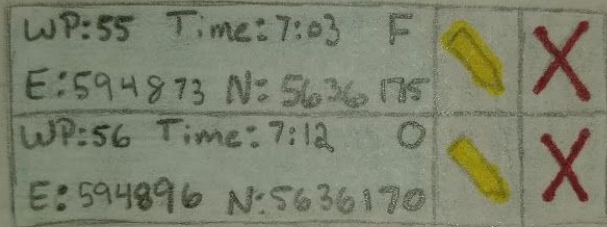 WP:55 Time:7:03 F
E:594873 N:5636175
WP:56 Time:7:12 O
E:594896 N:5636170